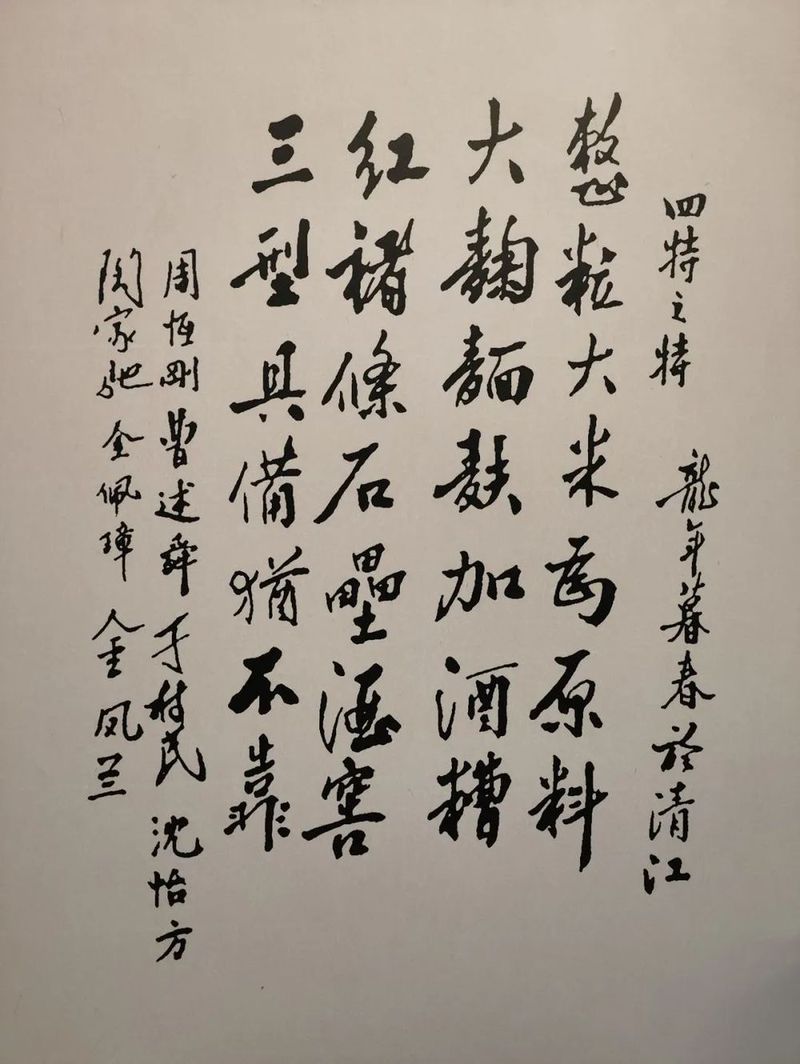 四特之特 龍年暮春於清江
整粒大米為原料
大麯麵麩加酒糟
紅褚條石壘酒窖
三型具備猶不靠
周恒剛 曹述舜 于树民 沈怡方
陶家驰 全佩璋 金凤兰